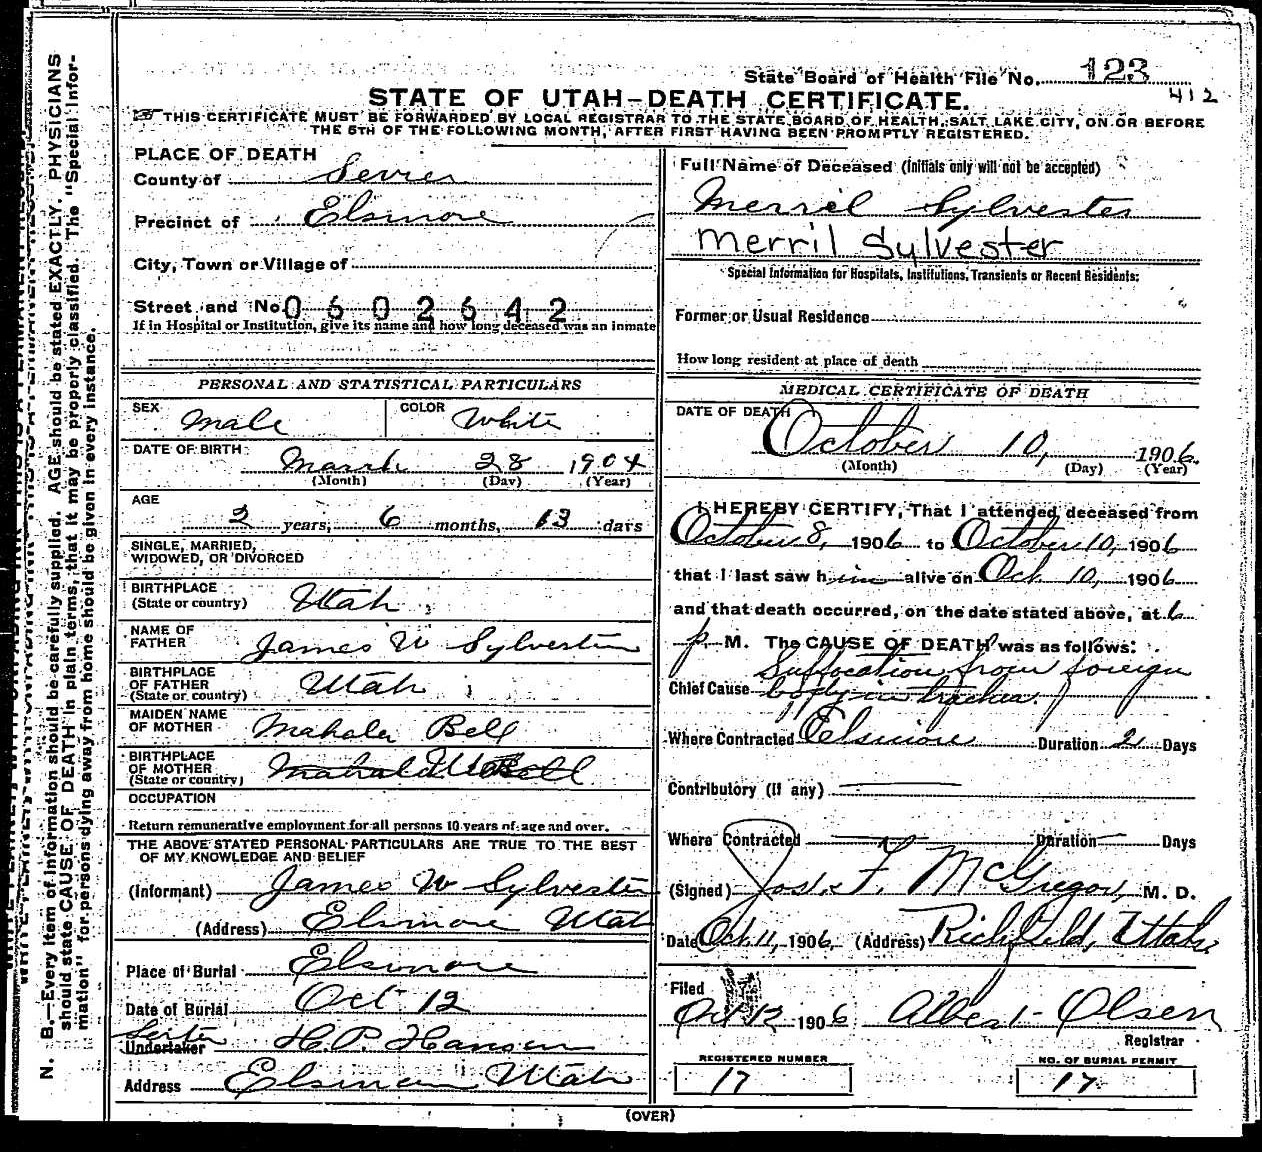 State Board of Health File No. 123
412
STATE OF UTAH—DEATH CERTIFICATE.
THIS CERTIFICATE MUST BE FORWARDED BY LOCAL REGISTRAR TO THE STATE BOARD OF HEALTH, SALT LAKE CITY, ON OR BEFORE
THE 5TH OF THE FOLLOWING MONTH, AFTER FIRST HAVING BEEN PROMPTLY REGISTERED.
PLACE OF DEATH
County of Sevier
Precinct of Elsinore
City, Town or Village of
Street and No. 0602642
If in Hospital or Institution, give its name and how long deceased was an inmate
PERSONAL AND STATISTICAL PARTICULARS
SEX Male COLOR White
DATE OF BIRTH March 28 1904
(Month) (Day) (Year)
AGE
2 years, 6 months, 13 days
SINGLE, MARRIED,
WIDOWED, OR DIVORCED
BIRTHPLACE
(State or country) Utah
NAME OF
FATHER James W Sylvester
BIRTHPLACE
OF FATHER
(State or country) Utah
MAIDEN NAME
OF MOTHER Mahala Bell
BIRTHPLACE
OF MOTHER
(State or country) Mahala Bell
OCCUPATION
Return remunerative employment for all persons 10 years of age and over.
THE ABOVE STATED PERSONAL PARTICULARS ARE TRUE TO THE BEST
OF MY KNOWLEDGE AND BELIEF
(Informant) James W Sylvester
(Address) Elsinore Utah
Place of Burial Elsinore
Date of Burial Oct 12
Sexton
Undertaker H. P. Hansen
Address Elsinore Utah
Full Name of Deceased (Initials only will not be accepted)
Merril Sylvester
Merril Sylvester
Special Information for Hospitals, Institutions, Transients or Recent Residents:
Former or Usual Residence
How long resident at place of death
MEDICAL CERTIFICATE OF DEATH
DATE OF DEATH
October 10, 1906
(Month) (Day) (Year)
I HEREBY CERTIFY, That I attended deceased from
October 8, 1906 to October 10, 1906
that I last saw him alive on Oct. 10, 1906
and that death occurred, on the date stated above, at 6
p. M. The CAUSE OF DEATH was as follows:
Suffocation from foreign
Chief Cause body in trachea.
Where Contracted Elsinore Duration 2 Days
Contributory (if any)
Where Contracted Duration Days
(Signed) Jos. F. McGregor, M. D.
Date Oct. 11, 1906 (Address) Richfield, Utah
Filed
Oct 12 1906 Albert Olsen
Registrar
REGISTERED NUMBER
17
NO. OF BURIAL PERMIT
17
(OVER)
N. B.—Every item of information should be carefully supplied. AGE should be stated EXACTLY. PHYSICIANS
should state CAUSE OF DEATH in plain terms, that it may be properly classified. The "Special Infor-
mation" for persons dying away from home should be given in every instance.